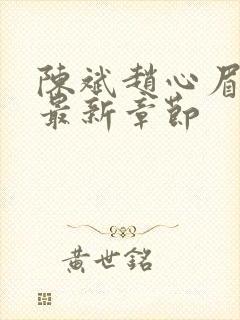 陳斌趙心眉
最新章節
黃世銘